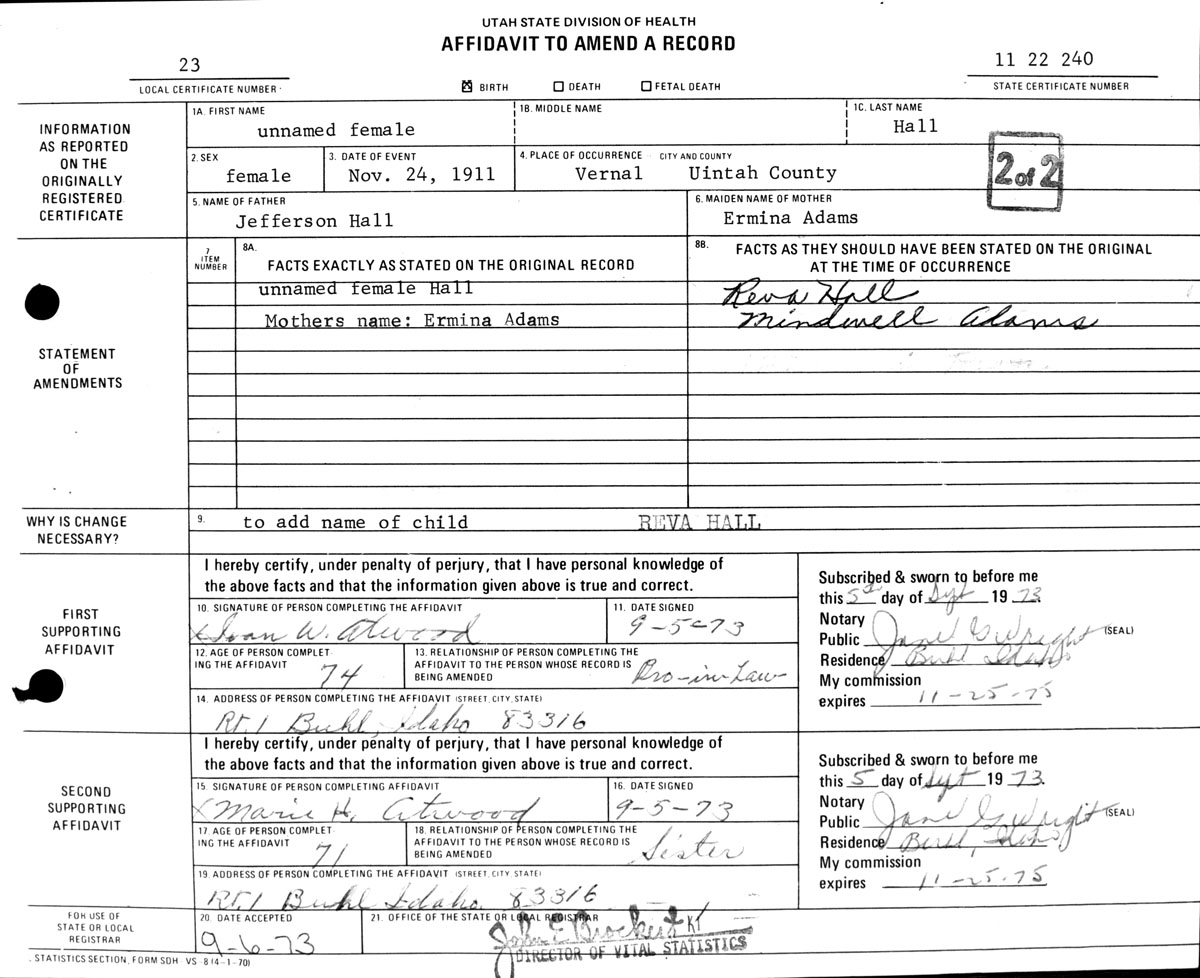 UTAH STATE DIVISION OF HEALTH
AFFIDAVIT TO AMEND A RECORD
23
LOCAL CERTIFICATE NUMBER
☒ BIRTH ☐ DEATH ☐ FETAL DEATH
11 22 240
STATE CERTIFICATE NUMBER
INFORMATION AS REPORTED ON THE ORIGINALLY REGISTERED CERTIFICATE
1A. FIRST NAME
unnamed female
1B. MIDDLE NAME
1C. LAST NAME
Hall
2. SEX
female
3. DATE OF EVENT
Nov. 24, 1911
4. PLACE OF OCCURRENCE CITY AND COUNTY
Vernal Uintah County
2 of 2
5. NAME OF FATHER
Jefferson Hall
6. MAIDEN NAME OF MOTHER
Ermina Adams
STATEMENT OF AMENDMENTS
7 ITEM NUMBER
8A.
FACTS EXACTLY AS STATED ON THE ORIGINAL RECORD
8B. FACTS AS THEY SHOULD HAVE BEEN STATED ON THE ORIGINAL
AT THE TIME OF OCCURRENCE
unnamed female Hall
Reva Hall
Mothers name: Ermina Adams
Mindwell Adams
WHY IS CHANGE NECESSARY?
9. to add name of child REVA HALL
FIRST SUPPORTING AFFIDAVIT
I hereby certify, under penalty of perjury, that I have personal knowledge of
the above facts and that the information given above is true and correct.
10. SIGNATURE OF PERSON COMPLETING THE AFFIDAVIT
x Ivan W. Atwood
11. DATE SIGNED
9-5-73
12. AGE OF PERSON COMPLETING THE AFFIDAVIT
74
13. RELATIONSHIP OF PERSON COMPLETING THE
AFFIDAVIT TO THE PERSON WHOSE RECORD IS
BEING AMENDED
Bro-in-Law
14. ADDRESS OF PERSON COMPLETING THE AFFIDAVIT (STREET, CITY, STATE)
Rt. 1 Buhl, Idaho 83316
Subscribed & sworn to before me
this 5th day of Sept 1973
Notary
Public Jane G. Wright (SEAL)
Residence Buhl Idaho
My commission
expires 11-25-75
SECOND SUPPORTING AFFIDAVIT
I hereby certify, under penalty of perjury, that I have personal knowledge of
the above facts and that the information given above is true and correct.
15. SIGNATURE OF PERSON COMPLETING AFFIDAVIT
x Marie H. Atwood
16. DATE SIGNED
9-5-73
17. AGE OF PERSON COMPLETING THE AFFIDAVIT
71
18. RELATIONSHIP OF PERSON COMPLETING THE
AFFIDAVIT TO THE PERSON WHOSE RECORD IS
BEING AMENDED
Sister
19. ADDRESS OF PERSON COMPLETING THE AFFIDAVIT (STREET, CITY, STATE)
Rt. 1 Buhl Idaho 83316
Subscribed & sworn to before me
this 5 day of Sept 1973
Notary
Public Jane G. Wright (SEAL)
Residence Buhl, Idaho
My commission
expires 11-25-75
FOR USE OF STATE OR LOCAL REGISTRAR
20. DATE ACCEPTED
9-6-73
21. OFFICE OF THE STATE OR LOCAL REGISTRAR
John E. Brockert KT
DIRECTOR OF VITAL STATISTICS
STATISTICS SECTION, FORM SDH - VS - 8 (4-1-70)